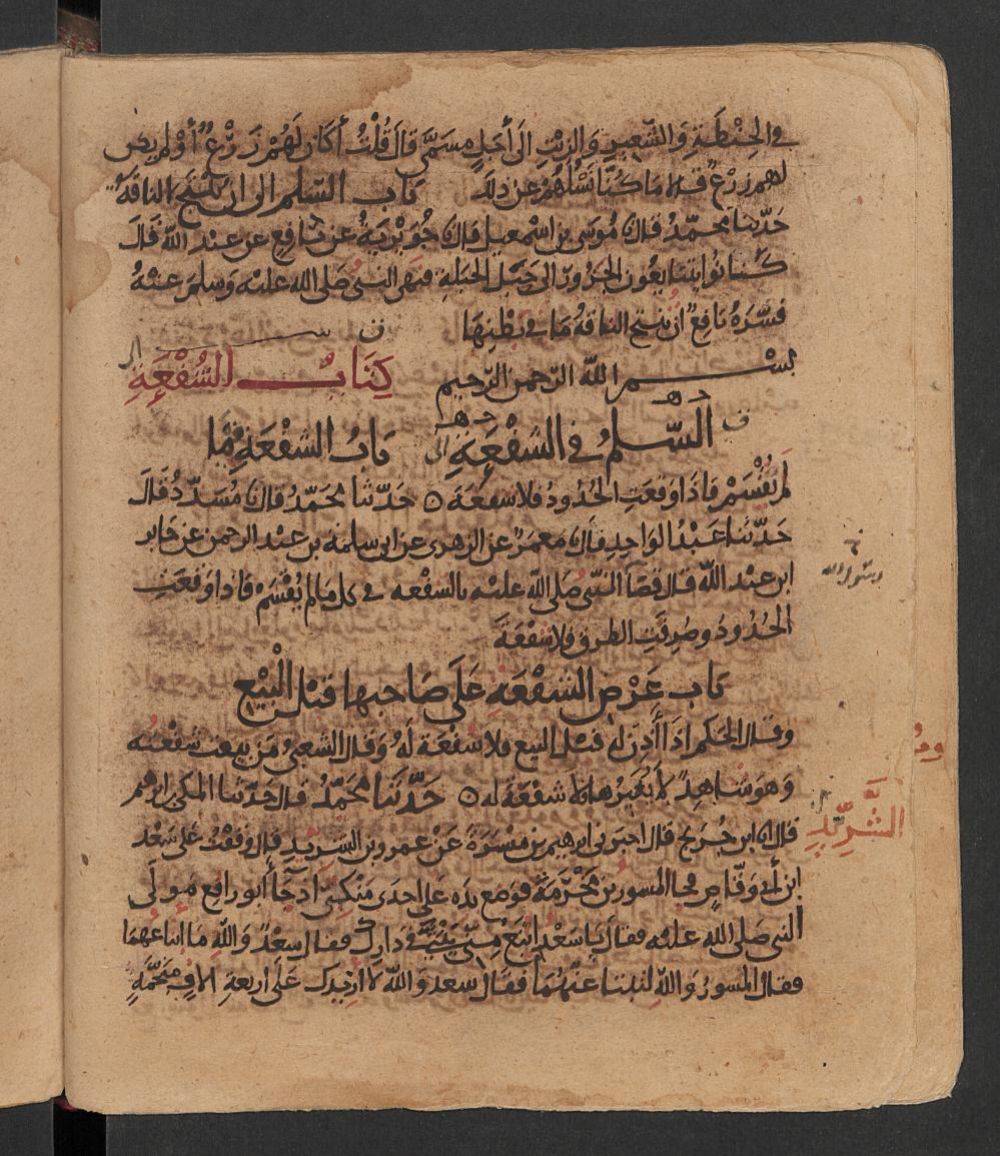 في الحِنْطَةِ وَالشَّعِيرِ وَالزيْتِ الَى أَجَلٍ مسَمًّى قالَ قُلْتُ أَكَانَ لَهُمْ زَرْعٌ أوْ لم يكن
لهم زرْعٌ قالا مَا كُنَّا نَسْأَلُهُمْ عَن ذلكَ باب السَّلم الى ان تُنْتَجَ الناقَةُ
حَدَّثنا محمّدٌ قالَ مُوسَى بن اسْمعيل قالَ جُوَيْرِيَةُ عن نافِعٍ عن عبْد اللهِ قَالَ
كَانُوا يتبايعُون الجَزُورَ الى حَبَل الحَبَلةِ فنهى النبيُّ صَلى الله عليْه وَسلم عنْهُ
فسَّرَهُ نافِعٌ ان تُنتج الناقةُ مَا في بطْنِهَا
بسْم الله الرّحمن الرّحيم كِتَابُ الشُّفْعَةِ
السَّلمُ في الشفْعَةِ بابُ الشفْعَةِ فيْمَا
لم يُقْسَمْ فاذَا وَقعَتِ الحُدُودُ فلا شفعَةَ ٥ حَدّثنا محمّدٌ قالَ مُسَدّدٌ قالَ
حَدّثنا عَبْدُ الوَاحِدِ قالَ معمَرٌ عن الزهرى عن ابى سلمة بن عبْد الرحمن عن جَابر
ابن عبْد اللهِ قال قضَا النبيّ صَلى الله عليْه بالشفْعه في كل مَا لم يُقْسَمْ فاذا وَقعَتِ
الحُدُودُ وصُرِفَتِ الطرق فلا شفْعَةَ
رسول الله
باب عَرْضِ الشفْعَةِ عَلَى صَاحبها قبْل البَيْعِ
وقال الحَكم اذَا أَذِنَ له قبْل البيع فلا شفْعَة لَهُ وَقال الشعبيُ مَن بيعت شفْعتُه
وَهوَ شاهِدٌ لا يُغَيّرُها فلا شفْعَةَ له ٥ حَدَّثنا محَمَّدٌ قال حَدّثنا المكى بن ابرهيم
قال انا ابن جُرَيج قال اخبرنى ابرهيم بن ميْسَرَةَ عَنْ عمرو بن الشرِيدِ قال وَقفْتُ عَلى سَعْد
الشَّرِيْدِ
ابن أبي وَقّاصٍ فجا المسور بن مَخْرَمَةَ فوضع يدَه عَلى احدَى مَنْكبَيَّ اذ جَا أَبو رافِع مَولَى
النبى صَلى الله عليْه فقالَ يَا سَعْد ابْتَعْ مِنّي بَيْتَيَّ في دَارِك فقال سعْدٌ وَاللهِ مَا ابتاعُهمَا
فقال المسورُ وَاللهِ لتبتاعنَّهُمَا فقالَ سعد وَاللهِ لا ازيْدك عَلَى اربعةِ الافٍ منَجَّمَةٍ